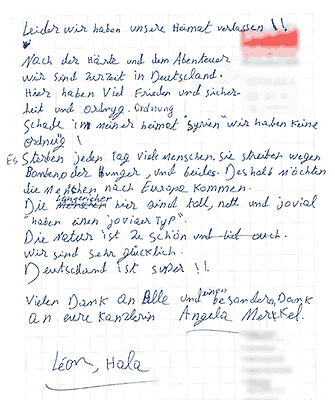 Leider wir haben unsere Heimat verlassen !!
Nach der Härte und dem Abenteuer
wir sind zurzeit in Deutschland.
Hier haben Viel Frieden und sicher-
heit und Ordnyg. Ordnung
Schade im meiner heimat "Syrien" wir haben Keine
ordnung !
Es Sterben jeden Tag viele menschen. Sie streiben wegen
Bomben oder Hunger, und beides. Deshalb möchten
die Menschen nach Europa kommen.
Die Menschen hier sind toll, nett und jovial
"haben einen jovialer Typ".
Die Natur ist zu schön und bid auch.
Wir sind sehr glücklich.
Deutschland ist super !!
Vielen Dank an Alle und einen besondern Dank
an eure Kanzlerin Angela Merxkel.
Léon, Hala